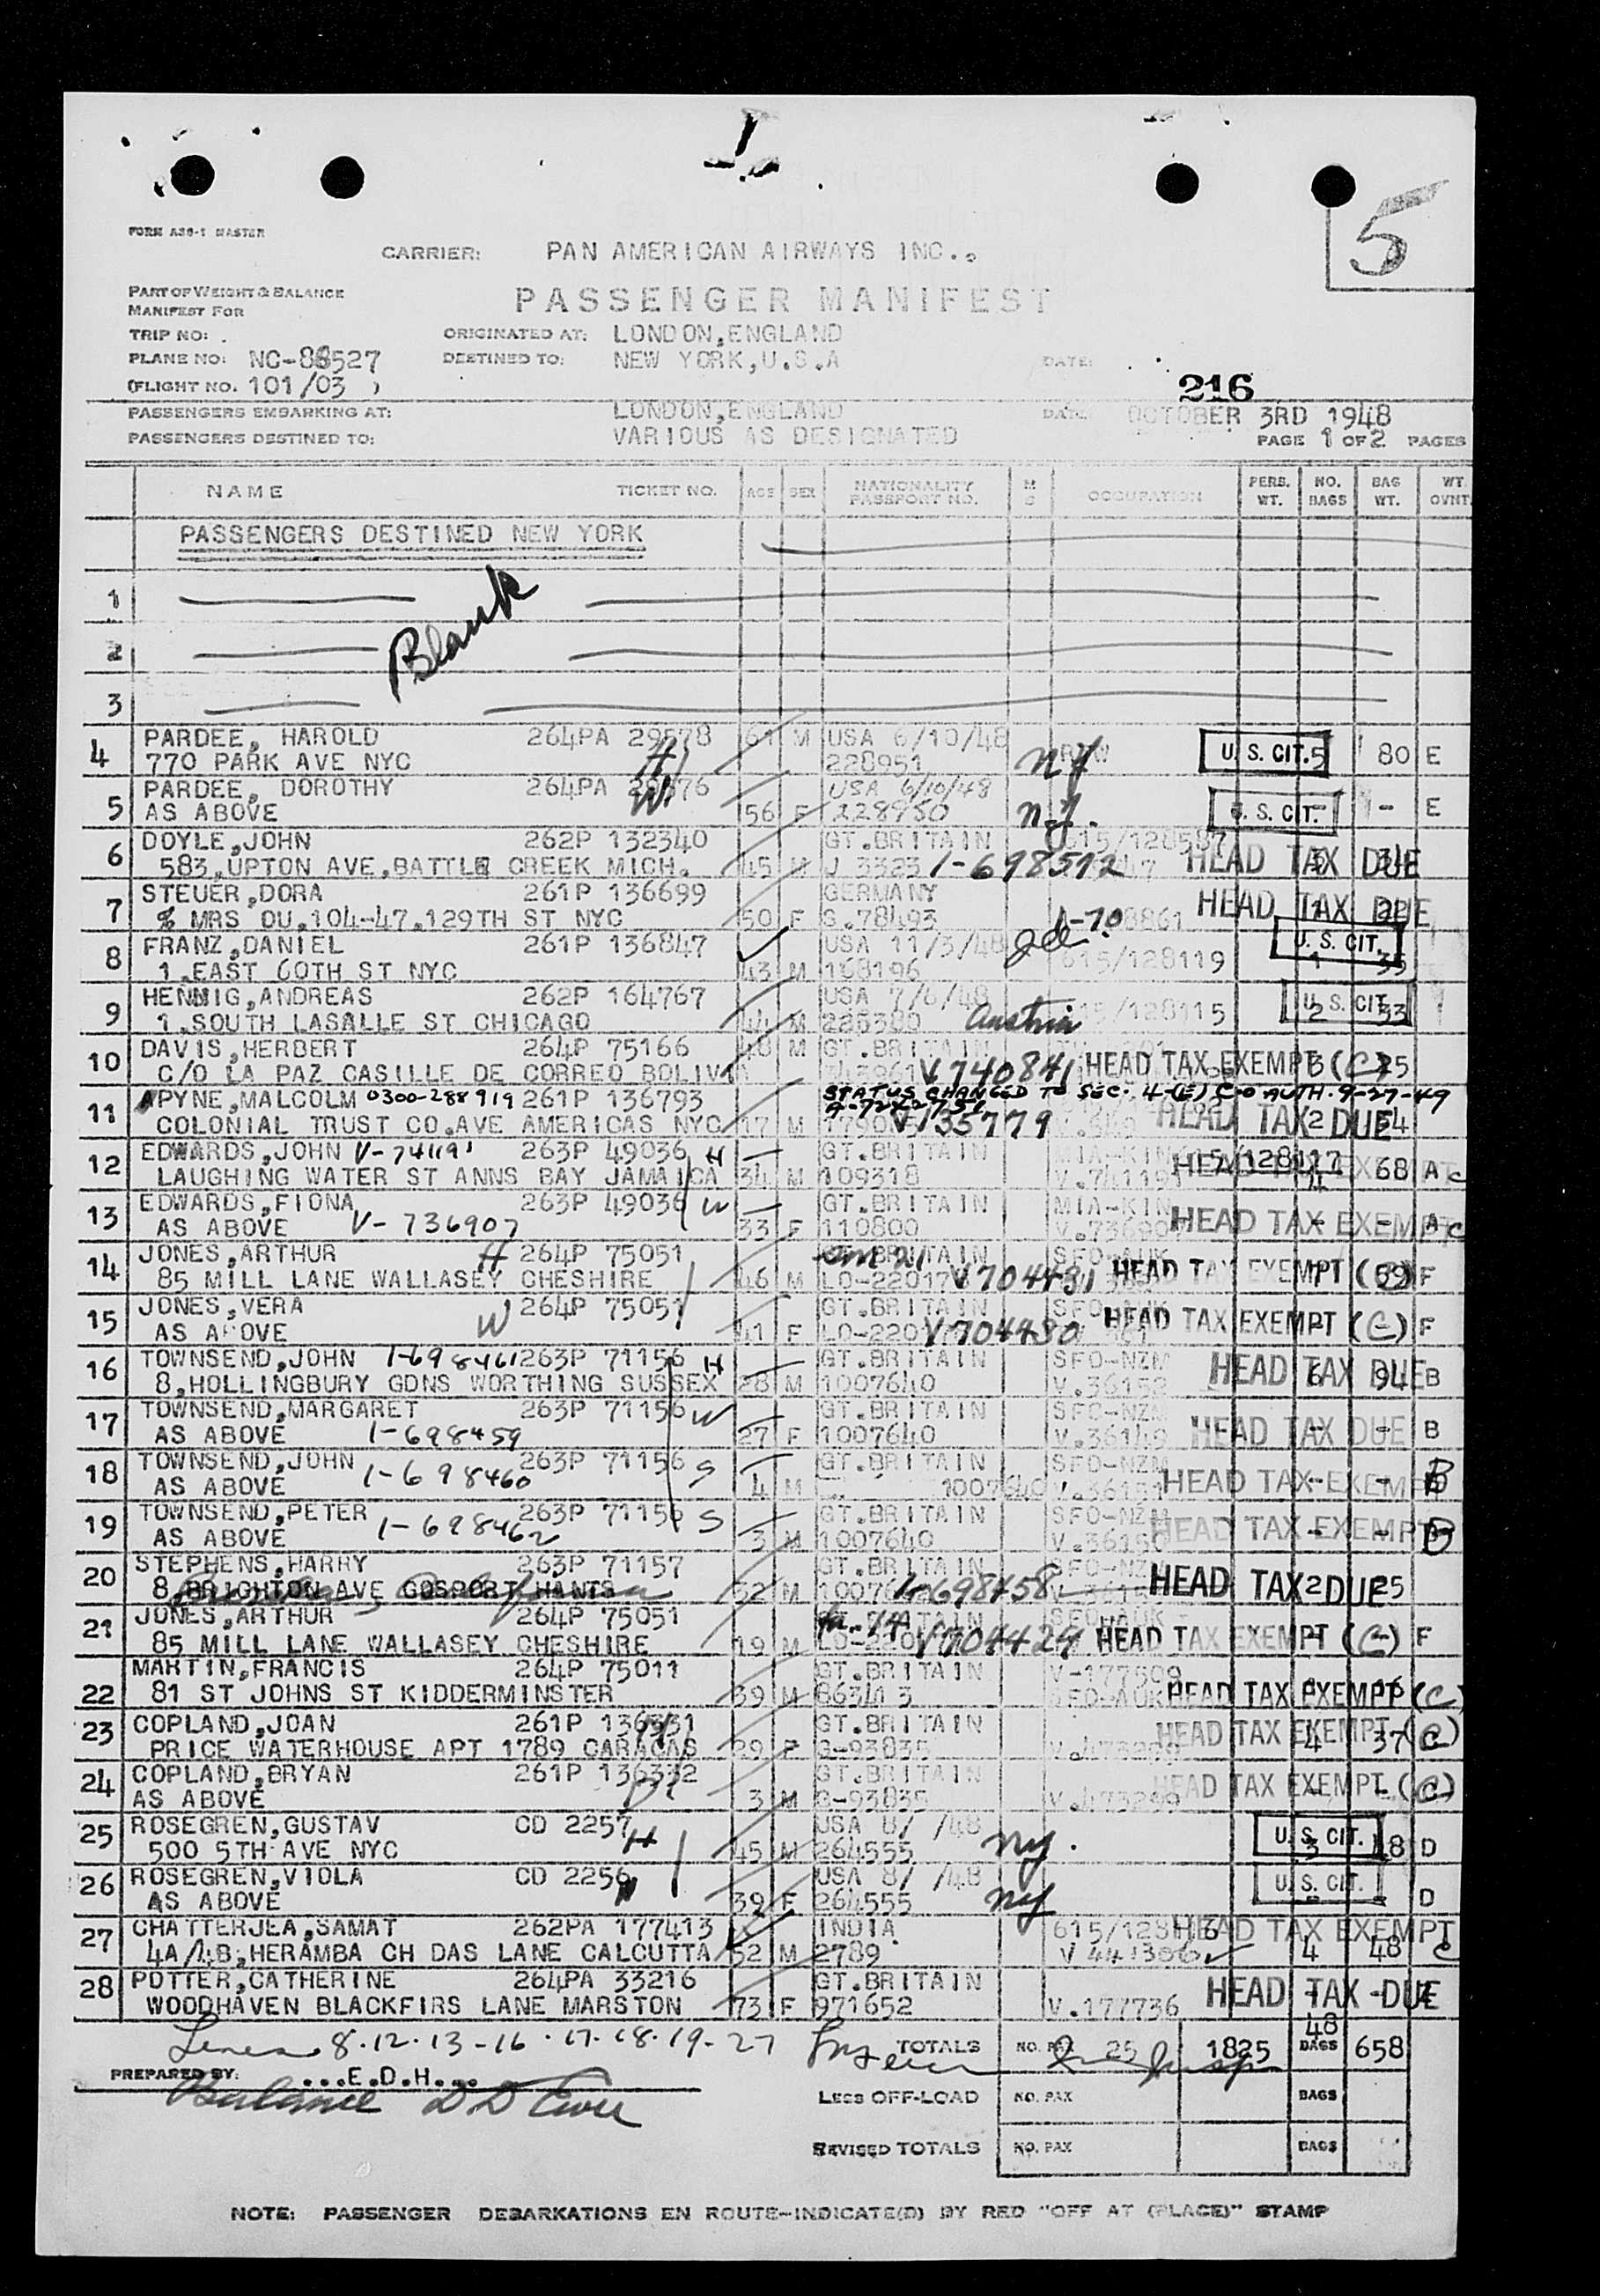 5
FORM A36-1 MASTER
CARRIER: PAN AMERICAN AIRWAYS INC..
PART OF WEIGHT & BALANCE
MANIFEST FOR
PASSENGER MANIFEST
TRIP NO: . ORIGINATED AT: LONDON,ENGLAND
PLANE NO: NC-88527 DESTINED TO: NEW YORK,U.S.A DATE:
(FLIGHT NO. 101/03 )
216
PASSENGERS EMBARKING AT: LONDON,ENGLAND DATE: OCTOBER 3RD 1948
PASSENGERS DESTINED TO: VARIOUS AS DESIGNATED PAGE 1 OF 2 PAGES
NAME TICKET NO. AGE SEX NATIONALITY PASSPORT NO. M S OCCUPATION PERS. WT. NO. BAGS BAG WT. WT. OVNT
PASSENGERS DESTINED NEW YORK
1
2 Blank
3
4 PARDEE, HAROLD 264PA 29578 61 M USA 6/10/48 U. S. CIT. 5 80 E
770 PARK AVE NYC H 228951 NY
5 PARDEE, DOROTHY 264PA USA 6/10/48 U. S. CIT. - - E
AS ABOVE W 56 F 228950 NY.
6 DOYLE,JOHN 262P 132340 GT.BRITAIN 615/128587
583,UPTON AVE,BATTLE CREEK MICH. 45 M J 3323 1-698592 HEAD TAX DUE
7 STEUER,DORA 261P 136699 GERMANY HEAD TAX DUE
% MRS OU,104-47,129TH ST NYC 50 F S.78493
8 FRANZ,DANIEL 261P 136847 USA 11/3/48 U. S. CIT.
1,EAST 60TH ST NYC 43 M 168196 615/128119 1 35
9 HENNIG,ANDREAS 262P 164767 USA 7/6/48 U. S. CIT.
1,SOUTH LASALLE ST CHICAGO 44 M Austria 615/128115 2 33
10 DAVIS,HERBERT 264P 75166 48 M GT.BRITAIN
C/O LA PAZ CASILLE DE CORREO BOLIVIA V740841 HEAD TAX EXEMPT (C) 3 25
11 PYNE,MALCOLM 0300-288919 261P 136793 STATUS CHANGED TO SEC. 4-(E) C-O AUTH. 9-27-49
COLONIAL TRUST CO.AVE AMERICAS NYC 17 M V135779 HEAD TAX DUE 2 54
12 EDWARDS,JOHN V-741191 263P 49036 H GT.BRITAIN MIA-KIN 615/128117
LAUGHING WATER ST ANNS BAY JAMAICA 34 M 109318 V.741191 HEAD TAX EXEMPT 4 68 A C
13 EDWARDS,FIONA 263P 49036 W GT.BRITAIN MIA-KIN
AS ABOVE V-736907 33 F 110800 V.736907 HEAD TAX EXEMPT - - A C
14 JONES,ARTHUR H 264P 75051 GT.BRITAIN SFO-AUK
85 MILL LANE WALLASEY CHESHIRE 46 M LO-22017 V704431 HEAD TAX EXEMPT F
15 JONES,VERA W 264P 75051 GT.BRITAIN SFO-AUK
AS ABOVE 41 F V704430 HEAD TAX EXEMPT (C) F
16 TOWNSEND,JOHN 1-698461 263P 71156 H GT.BRITAIN SFO-NZM
8,HOLLINGBURY GDNS WORTHING SUSSEX 28 M 1007640 V.36152 HEAD TAX DUE 6 94 B
17 TOWNSEND,MARGARET 263P 71156 W GT.BRITAIN SFO-NZM
AS ABOVE 1-698459 27 F 1007640 V.36149 HEAD TAX DUE - - B
18 TOWNSEND,JOHN 263P 71156 S GT.BRITAIN SFO-NZM
AS ABOVE 1-698460 4 M 1007640 V.36151 HEAD TAX EXEMPT - - B
19 TOWNSEND,PETER 263P 71156 S GT.BRITAIN SFO-NZM
AS ABOVE 1-698462 3 M 1007640 V.36150 HEAD TAX EXEMPT - - B
20 STEPHENS,HARRY 263P 71157 GT.BRITAIN SFO-NZM
8,BRIGHTON AVE GOSPORT HANTS 52 M 1-698458 HEAD TAX DUE 2 25
21 JONES,ARTHUR 264P 75051 SFO-AUK
85 MILL LANE WALLASEY CHESHIRE 19 M V704429 HEAD TAX EXEMPT (C) F
22 MARTIN,FRANCIS 264P 75011 GT.BRITAIN V-177509
81 ST JOHNS ST KIDDERMINSTER 39 M SFO-AUK HEAD TAX EXEMPT (C)
23 COPLAND,JOAN 261P 136331 GT.BRITAIN
PRICE WATERHOUSE APT 1789 CARACAS 29 F G-93835 V.473299 HEAD TAX EXEMPT 4 37 (C)
24 COPLAND,BRYAN 261P 136332 GT.BRITAIN
AS ABOVE 3 M G-93835 V.473299 HEAD TAX EXEMPT (C)
25 ROSEGREN,GUSTAV CD 2257 USA 8/ /48
500 5TH AVE NYC H 45 M 264555 NY. U. S. CIT. 3 48 D
26 ROSEGREN,VIOLA CD 2256 USA 8/ /48
AS ABOVE 39 F 264555 NY U. S. CIT. - - D
27 CHATTERJEA,SAMAT 262PA 177413 INDIA 615/128116 HEAD TAX EXEMPT
4A/4B,HERAMBA CH DAS LANE CALCUTTA 52 M 2789. V 441306 4 48 C
28 POTTER,CATHERINE 264PA 33216 GT.BRITAIN
WOODHAVEN BLACKFIRS LANE MARSTON 73 F 971652 V.177736 HEAD TAX DUE
Lines 8.12.13-16.17.18.19-27 TOTALS NO. PAX 25 1825 48 BAGS 658
PREPARED BY: ...E.D.H...
Balance
LESS OFF-LOAD NO. PAX BAGS
REVISED TOTALS NO. PAX BAGS
NOTE: PASSENGER DEBARKATIONS EN ROUTE-INDICATE(D) BY RED "OFF AT (PLACE)" STAMP